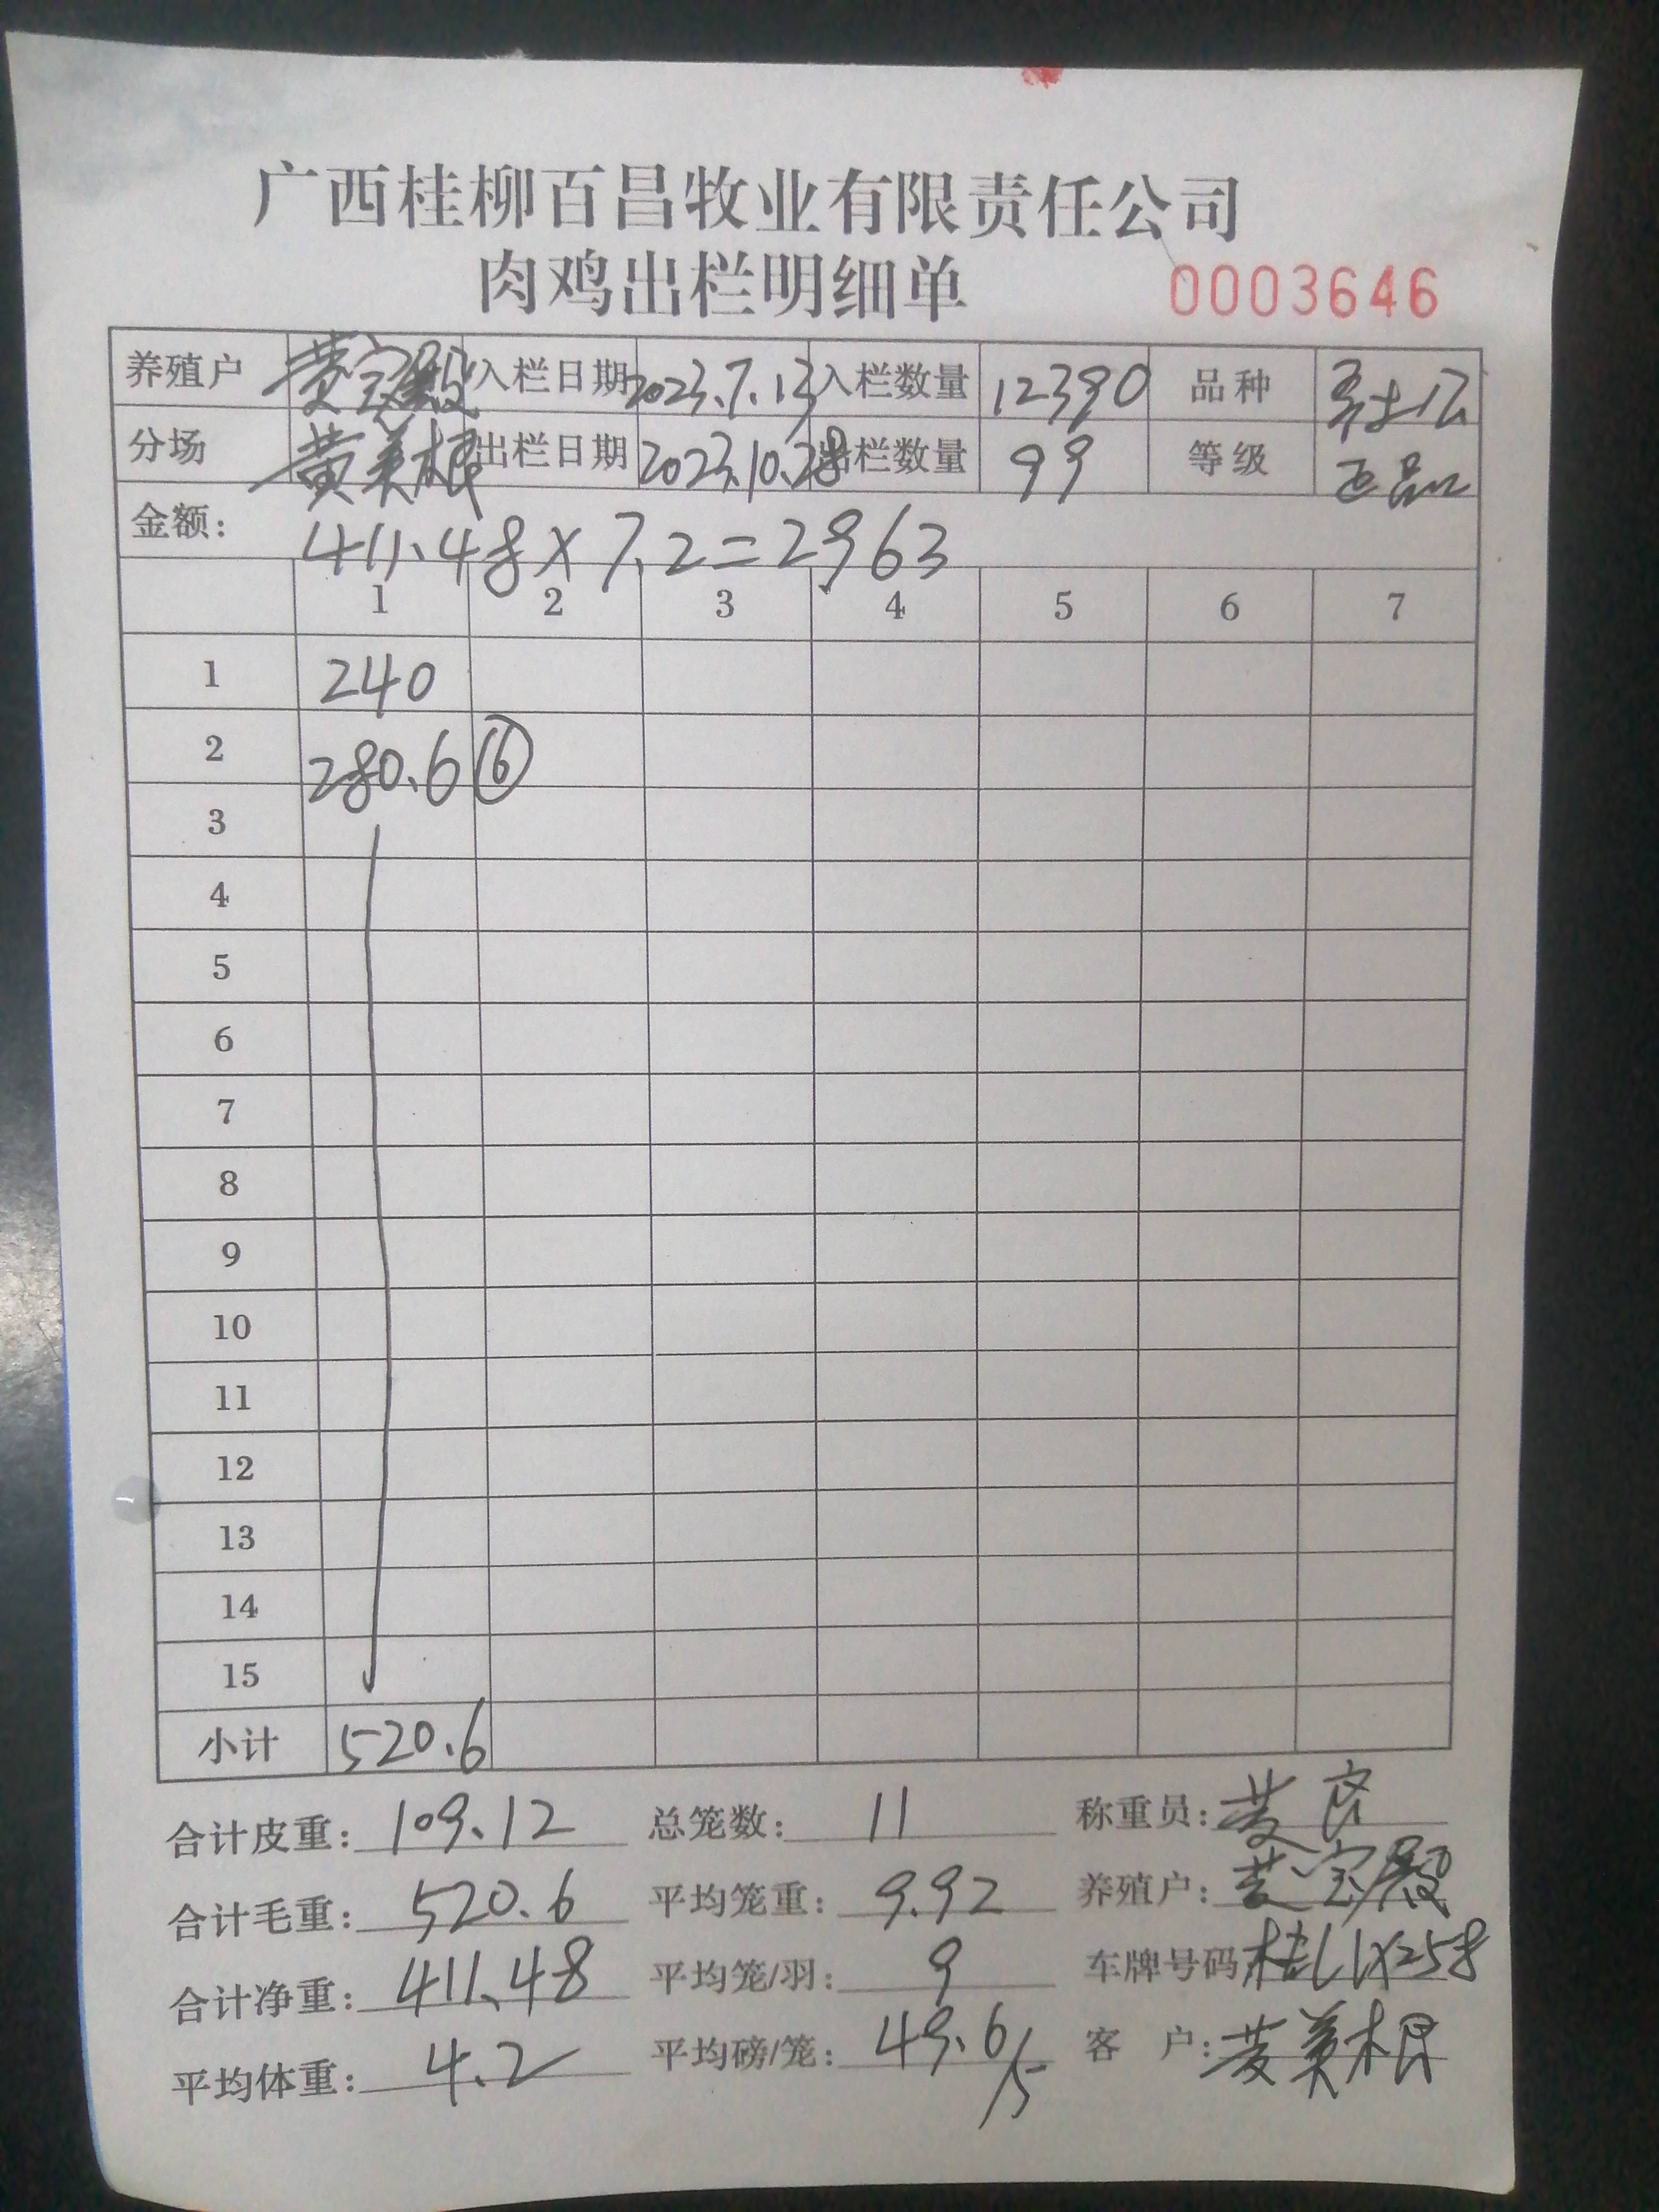 广西桂柳百昌牧业有限责任公司
肉鸡出栏明细单 0003646
养殖户 黄宝殿 入栏日期 2023.7.13 入栏数量 12390 品种
分场 黄美根 出栏日期 2023.10.28 出栏数量 99 等级 正品
金额: 411.48×7.2=2963
1 2 3 4 5 6 7
1 240
2 280.6 ⑥
3
4
5
6
7
8
9
10
11
12
13
14
15
小计 520.6
合计皮重: 109.12 总笼数: 11 称重员: 黄
合计毛重: 520.6 平均笼重: 9.92 养殖户: 黄宝殿
合计净重: 411.48 平均笼/羽: 9 车牌号码
平均体重: 4.2 平均磅/笼: 49.6/5 客 户: 黄美根